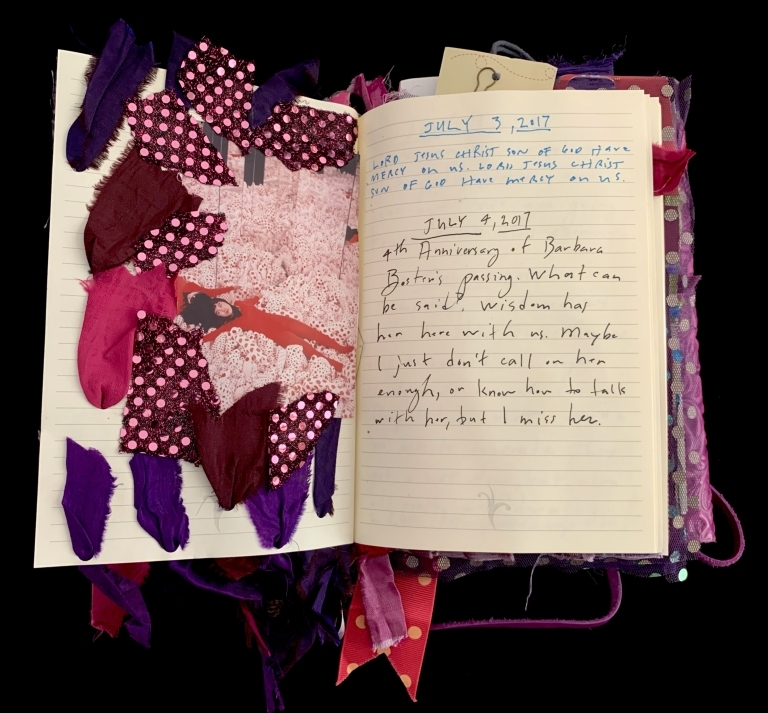 JULY 3, 2017
LORD JESUS CHRIST SON OF GOD HAVE
MERCY ON US. LORD JESUS CHRIST
SON OF GOD HAVE MERCY ON US.
JULY 4, 2017
4th Anniversary of Barbara
passing. What can
be said? Wisdom has
her here with us. Maybe
I just don't call on her
enough, or know how to talk
with her, but I miss her.